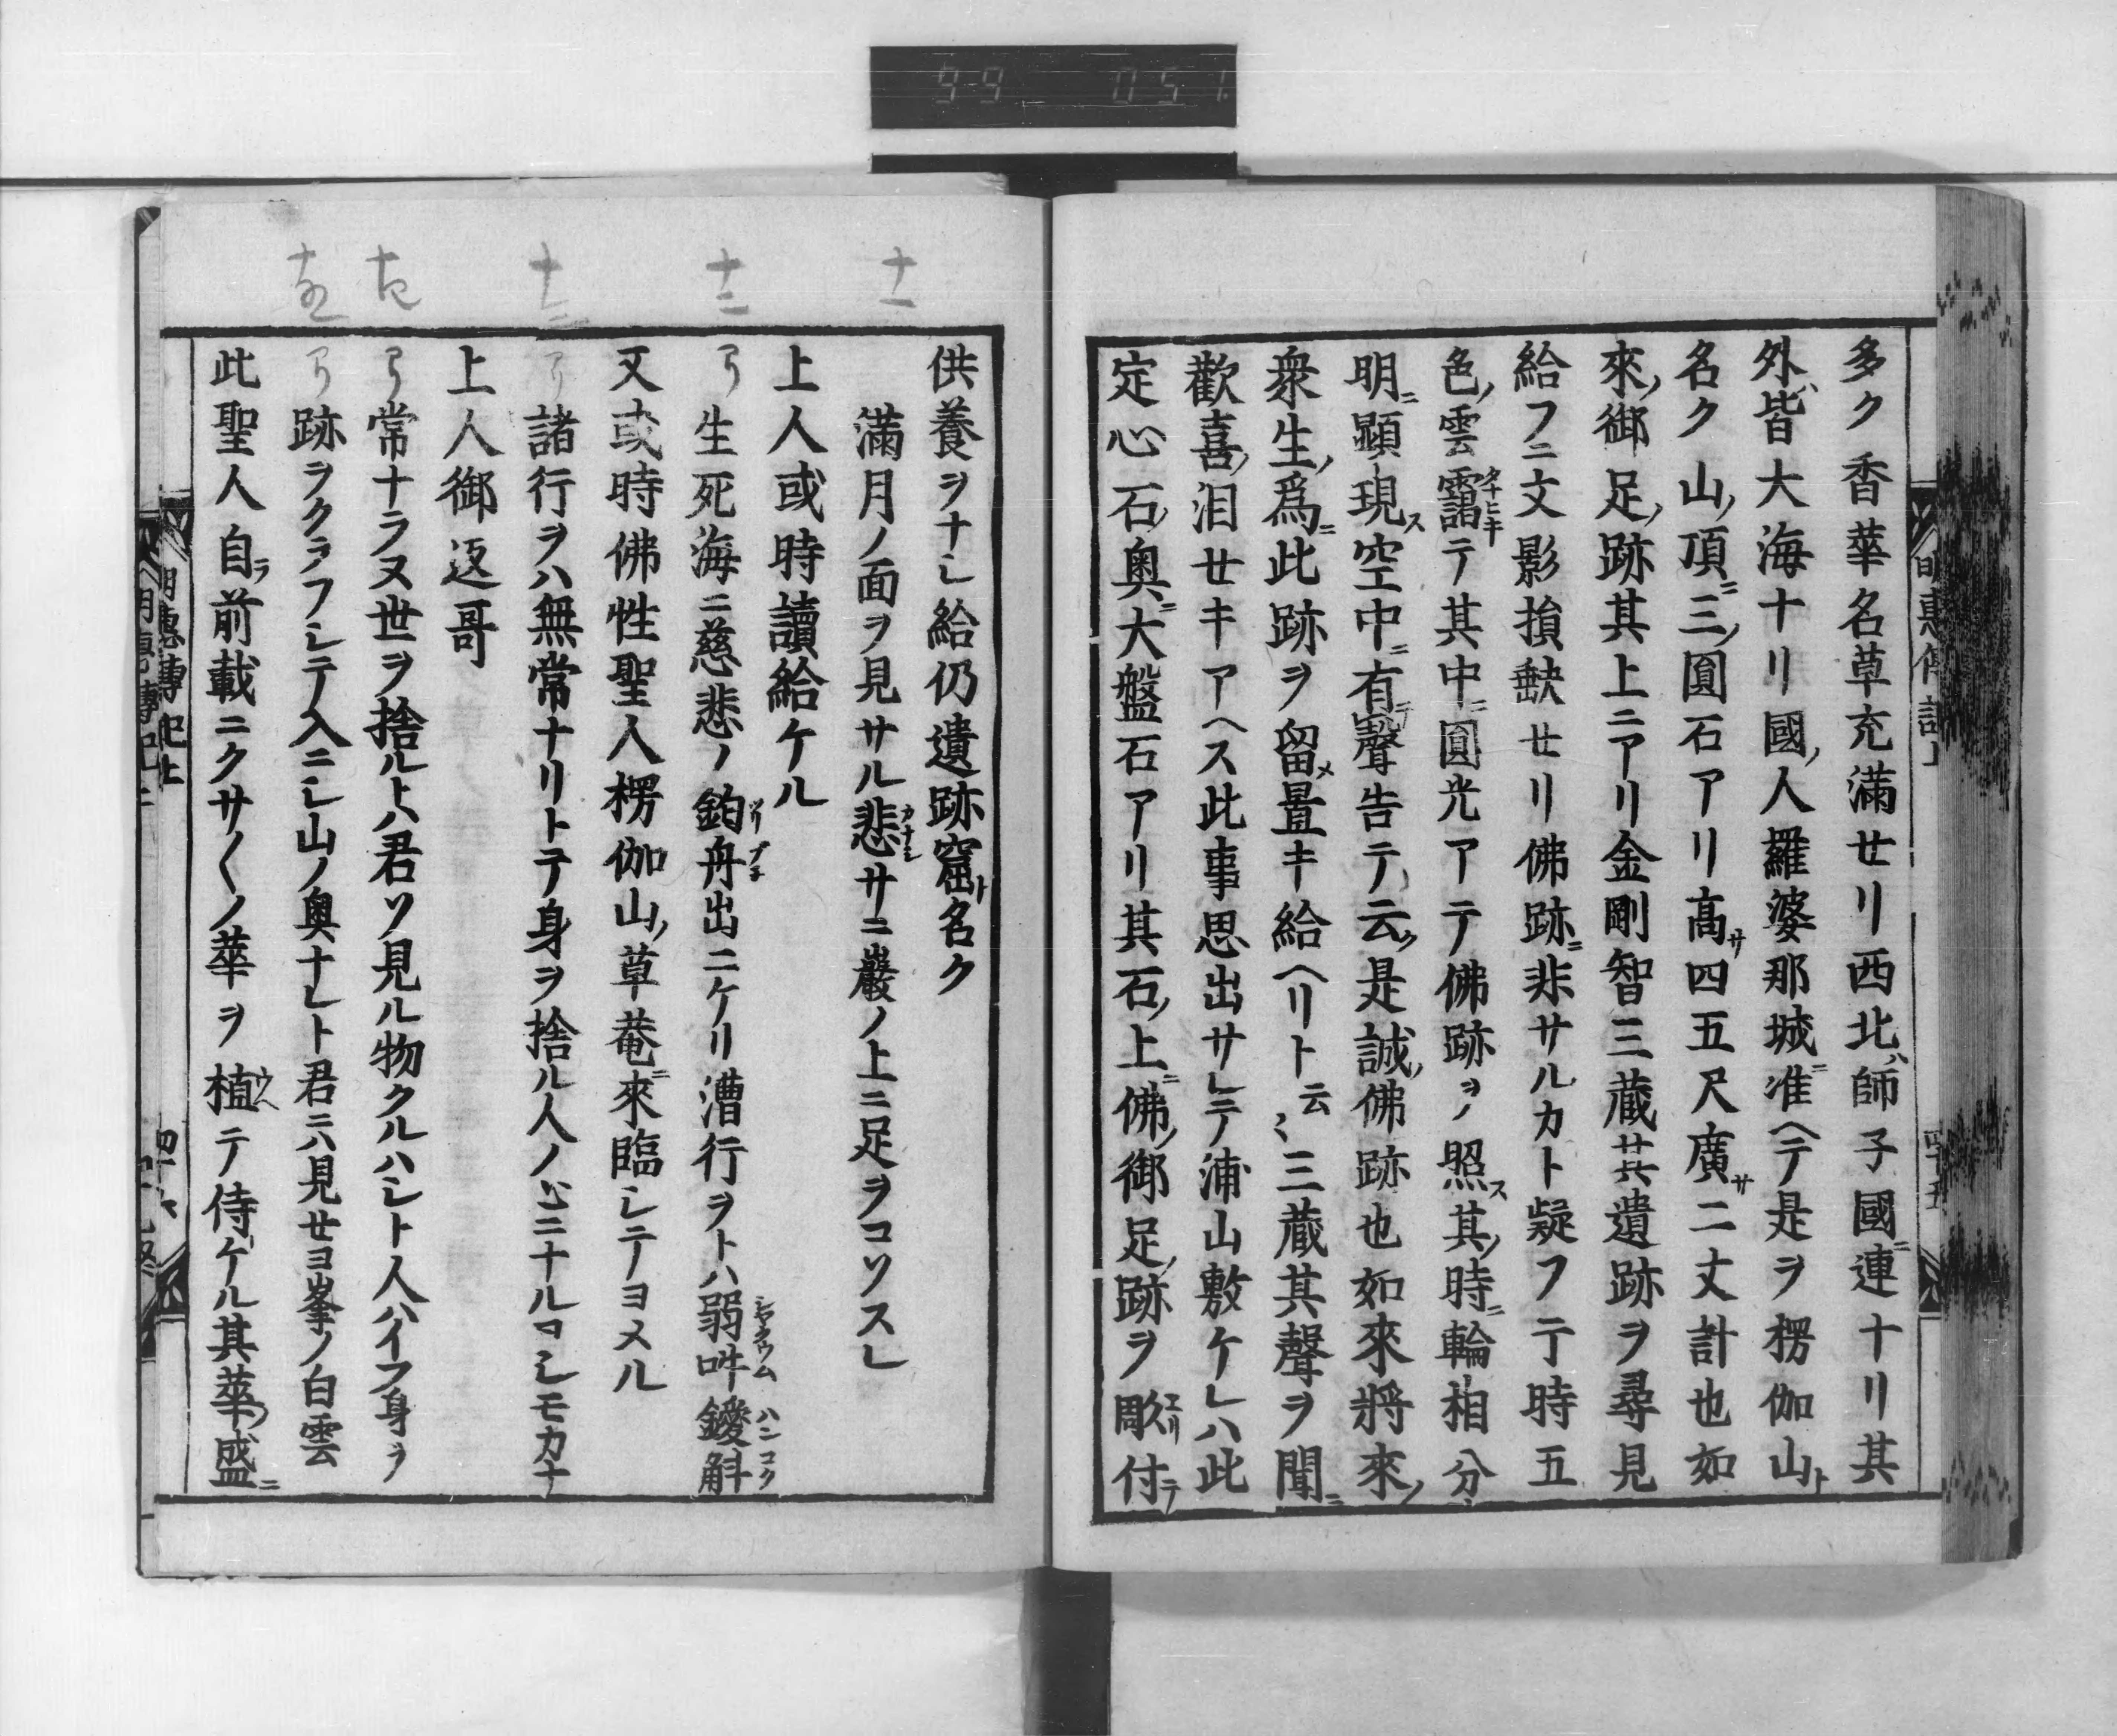 99 051
多ク香華名草充滿セリ西北ハ師子國ニ連ナリ其
外ハ皆大海ナリ國ノ人羅婆那城ニ准ヘテ是ヲ楞伽山ト
名ク山ノ頂ニ三ノ圓石アリ高サ四五尺廣サ二丈計也如
來ノ御足ノ跡其上ニアリ金剛智三藏其遺跡ヲ尋見
給フニ文影損缺セリ佛跡ニ非サルカト疑フテ時五
色ノ雲靄タナヒキテ其中ニ圓光アテ佛跡ヲ照ス其ノ時ニ輪相分
明ニ顯現ス空中ニ有テ聲告テ云ク是誠ノ佛跡也如來將來ノ
衆生ノ爲ニ此跡ヲ留メ置キ給ヘリト云〻三藏其聲ヲ聞ニ
歡喜ノ泪セキアヘス此事思出サレテ浦山敷ケレハ此
定心石ノ奥ニ大盤石アリ其石ノ上ニ佛ノ御足ノ跡ヲ彫付テ
供養ヲナシ給仍遺跡窟ト名ク
滿月ノ面ヲ見サル悲サニ巖ノ上ニ足ヲコソスレ
上人或時讀給ケル
生死海ニ慈悲ノ釣舟出ニケリ漕行ヲトハ弱吽鑁斛
又或時佛性聖人楞伽山ノ草菴ニ來臨シテヨメル
諸行ヲハ無常ナリトテ身ヲ捨ル人ノ心ニナルコシモカナ
上人御返哥
常ナラヌ世ヲ捨ルトハ君ソ見ル物クルハシト人ハイフ身ヲ
跡ヲクラフシテ入ニシ山ノ奥ナレト君ニハ見セヨ峯ノ白雲
此聖人自ラ前載ニクサ〱ノ華ヲ植テ侍ケル其華ノ盛ニ
十一
十二
十三
十四
十五
明惠傳記上
四十五